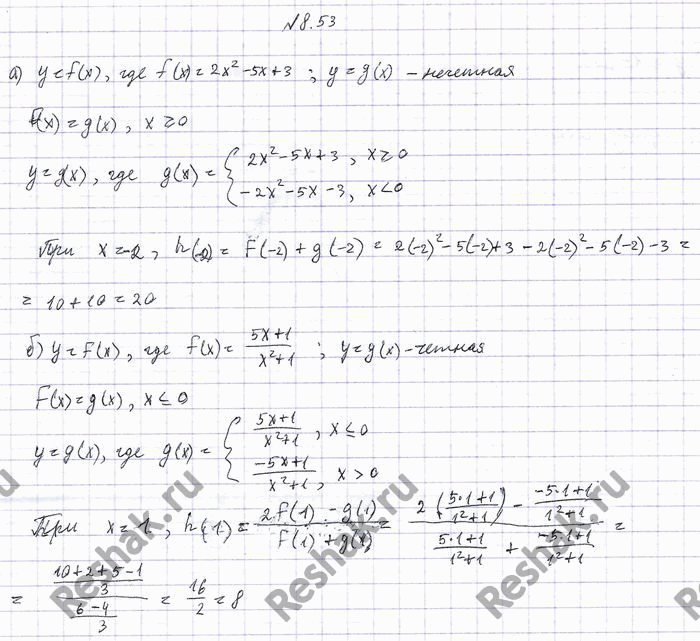 №8.53
а) y=f(x), где f(x)=2x²-5x+3 ; y=g(x) – нечетная
f(x)=g(x), x≥0
y=g(x), где g(x)= { 2x²-5x+3, x≥0
-2x²-5x-3, x<0
При x=-2, h(-2)= f(-2)+g(-2)= 2(-2)²-5(-2)+3-2(-2)²-5(-2)-3=
= 10+10=20
б) y=f(x), где f(x)= (5x+1)/(x²+1) ; y=g(x)-четная
f(x)=g(x), x≤0
y=g(x), где g(x)= { (5x+1)/(x²+1), x≤0
(-5x+1)/(x²+1), x>0
При x=1, h(1)= (2f(1)-g(1))/(f(1)+g(1)) = (2((5·1+1)/(1²+1)) - (-5·1+1)/(1²+1))/((5·1+1)/(1²+1) + (-5·1+1)/(1²+1)) =
= ((10+2+5-1)/3)/((6-4)/3) = 16/2 = 8
Reshak.ru
Reshak.ru
Reshak.ru